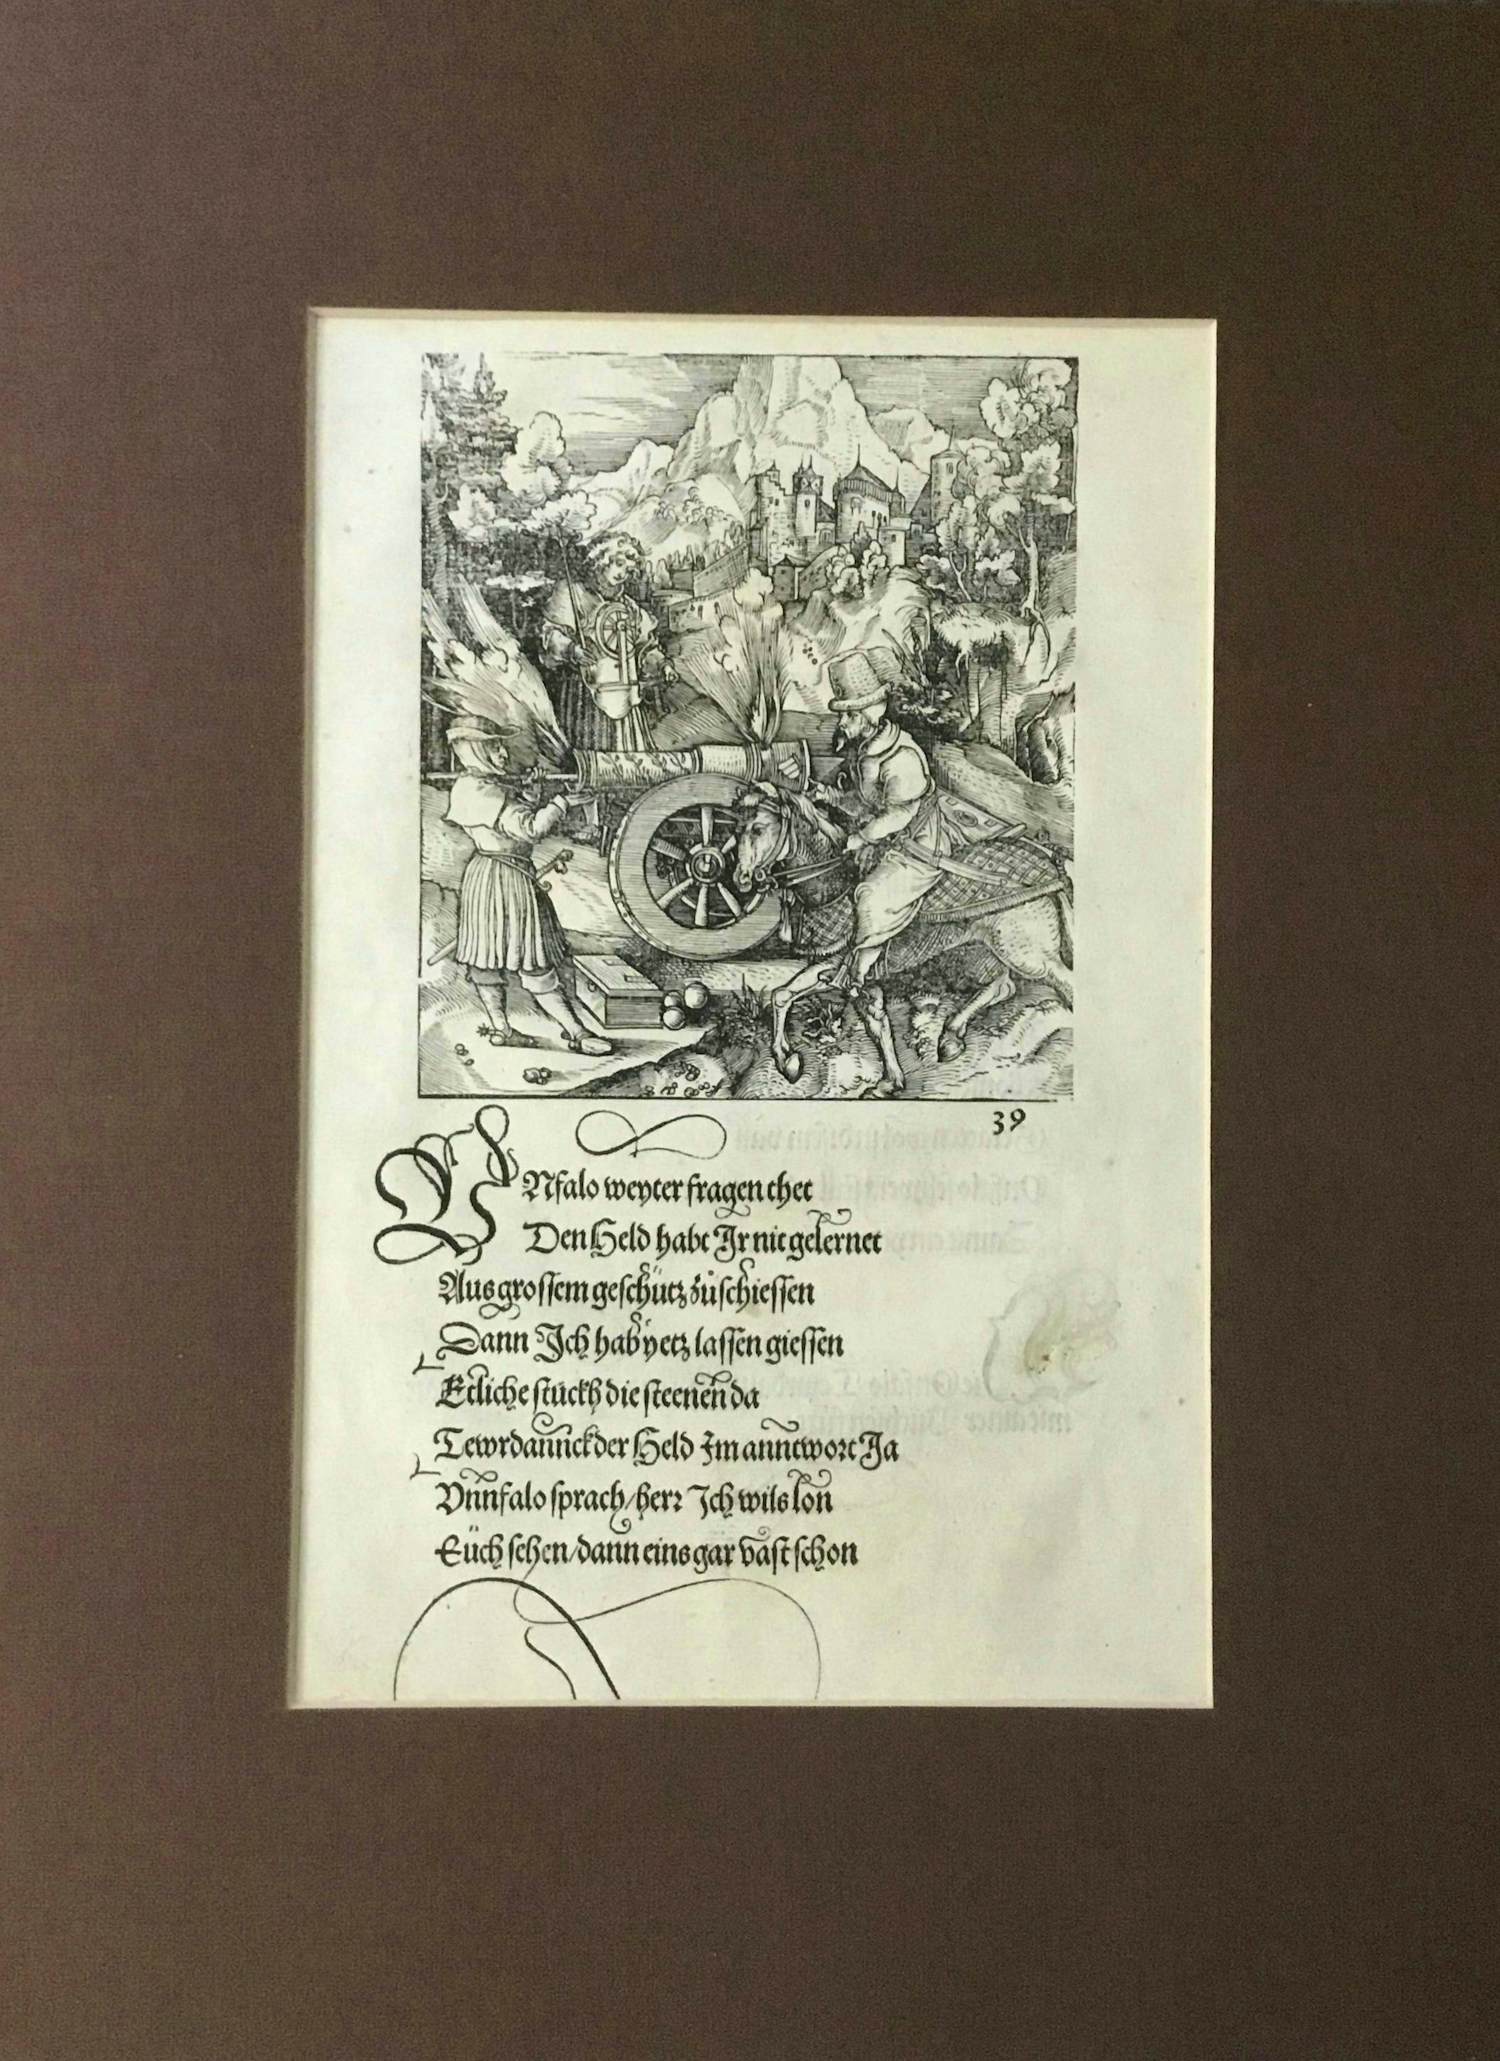 39
VNfalo weyter fragen thet
Den Held habt Jr nit gelernet
Aus grossem geschütz zůschiessen
Dann Jch hab yetz lassen giessen
Etliche stuckh die steenen da
Tewrdannckder Held Jm anntwort Ja
Vnnfalo sprach/herr Jch wils lon
Eüch sehen/dann eins gar vast schon